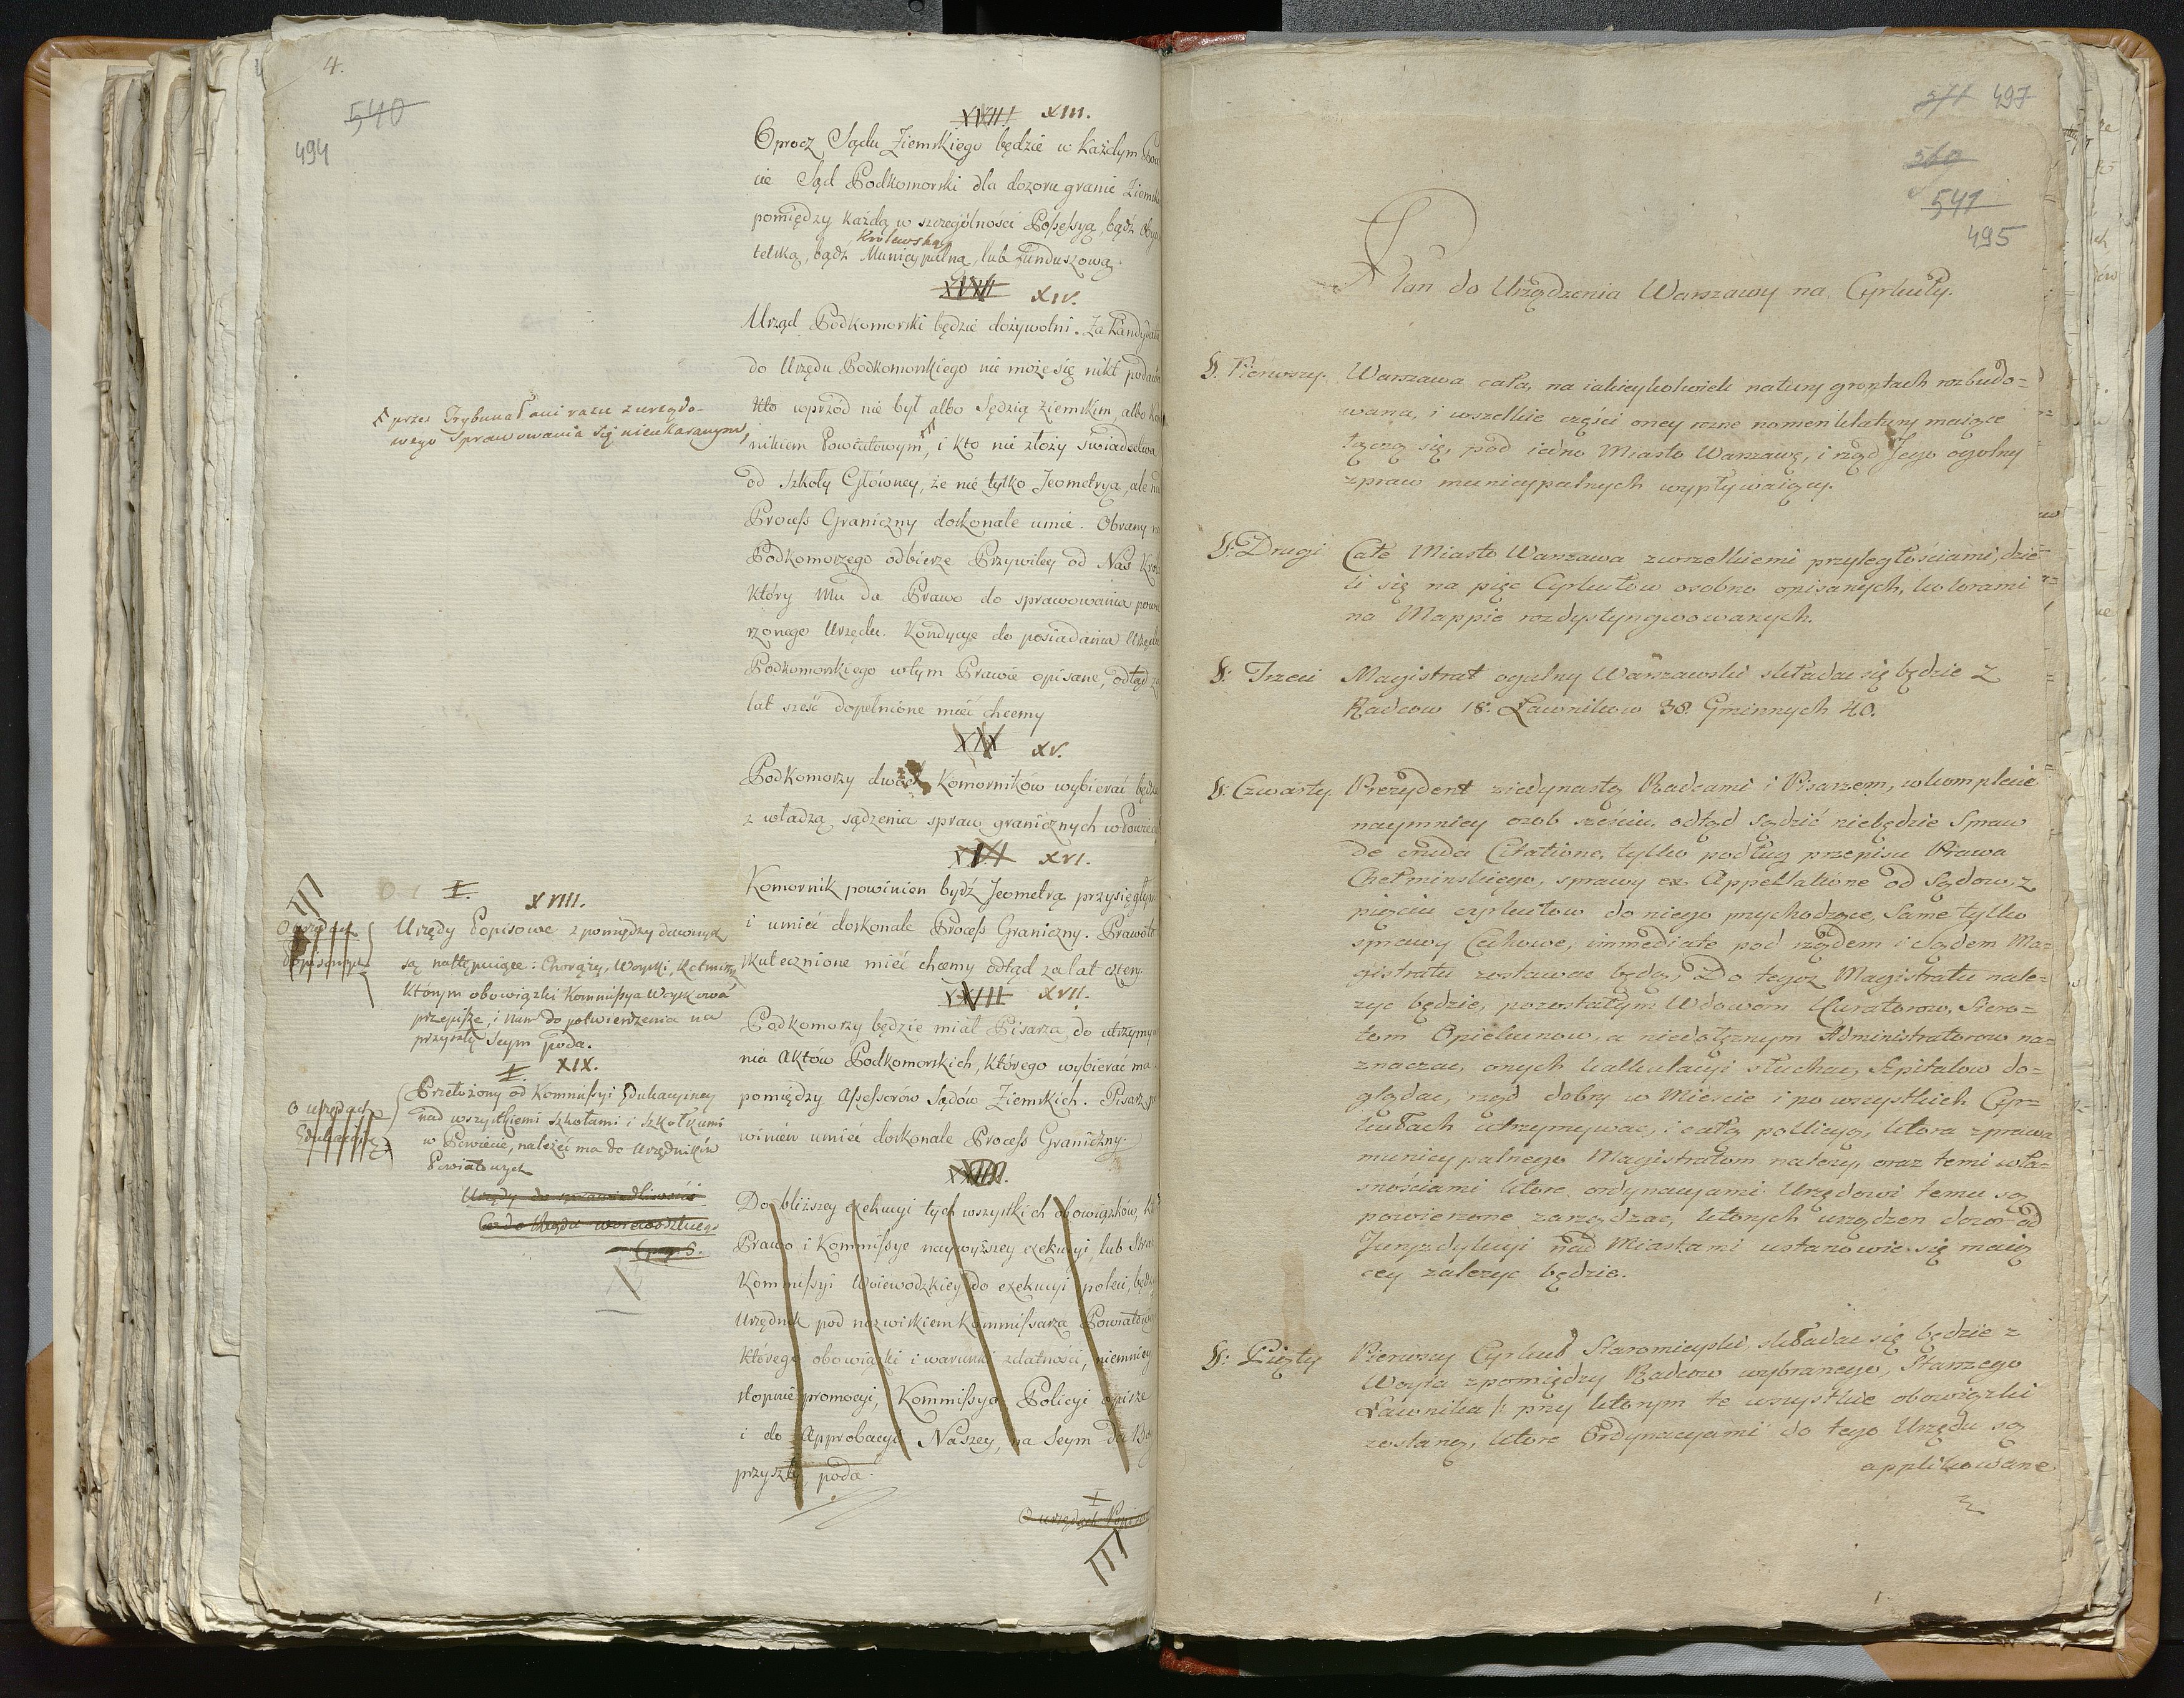 4.
540
494
XVIII XIII.
Oprocz Sądu Ziemskiego będzie w każdym Pow
cie Sąd Podkomorski dla dozoru granic Ziemsk
pomiędzy każdą w szczególności Possessyą, bądź Oby
Królewską
telską, bądź Municypalną, lub funduszową.
XIV.
Urząd Podkomorski będzie dożywotni. Za Kandydata
do Urzędu Podkomorskiego nie może się nikt podawa
Kto wprzód nie był albo Sędzią Ziemskim, albo Ko
nikiem Powiatowym, i kto nie złoży świadectwa
od Szkoły Główney, że nie tylko Jeometryą, ale na
Process Graniczny doskonale umie. Obrany na
Podkomorzego odbierze Przywiley od Nas Krola
który Mu da Prawo do sprawowania powie
rzonego Urzędu. Kondycye do posiadania Urzędu
Podkomorskiego w tym Prawie opisane, odtąd za
lat sześć dopełnione mieć chcemy
XIX XV.
Podkomorzy dwóch Komorników wybierać będzie
z władzą sądzenia spraw granicznych w Powiecie
XVI.
Komornik powinien bydź Jeometrą przysięgłym
i umieć doskonale Process Graniczny. Prawo to
skutecznione mieć chcemy odtąd za lat cztery.
XVII.
Podkomorzy będzie miał Pisarza do utrzymy
nia Aktów Podkomorskich, którego wybierać ma
pomiędzy Assessorów Sądów Ziemskich. Pisarz po
winien umieć doskonale Process Graniczny.
Do bliższey exekucyi tych wszystkich obowiązków, kt
Prawo i Kommissye naywyższey exekucyi, lub Straż
Kommissyi Woiewodzkiey do exekucyi poleci, będz
Urzędnik pod nazwiskiem Kommissarza Powiatow
którego obowiązki i warunki zdatności, niemniey
stopnie promocyi, Kommissya Policyi opisze
i do Approbacyi Naszey, na Seym da Bóg
przyszły poda.
I
O urzędach Popisow
przez Trybunał ani razu z urzędo-
wego sprawowania się nieukaranym,
I. XVIII.
O urzędach
Popisowych
Urzędy Popisowe z pomiędzy dawnych
są następuiące: Chorąży, Woyski, Rotmistrz
którym obowiązki Kommissya Woyskowa
przepisze, i nam do potwierdzenia na
przyszły Seym poda.
I. XIX.
O urzędach
Edukacyiny
Przełożony od Kommissyi Edukacyiney
nad wszystkiemi szkołami i szkołkami
w Powiecie, należeć ma do Urzędników
Powiatowych
Urzędy do sprawiedliwości
Co do Urzędu woiewodzkiego
pag 5.
511 497
560
541
495
Plan do Urządzenia Warszawy na Cyrkuły.
§. Pierwszy. Warszawa cała, na iakieykolwiek natury gruntach rozbudo=
wana, i wszelkie części oney rożne nomenklatury maiące
łączą się, pod iedno Miasto Warszawę, i rząd Jego ogolny
z praw municypalnych wypływaiący.
§. Drugi Całe Miasto Warszawa z wszelkiemi przyległościami, dzie=
li się na pięc Cyrkułow osobno opisanych, kolorami
na Mappie rozdystyngwowanych.
§. Trzeci Magistrat ogulny Warszawski składac się będzie z
Radcow 18. Ławnikow 38. Gminnych 40.
§. Czwarty. Prezydent ziedynastą Radcami i Pisarzem, w komplecie
naymniey osob sześciu, odtąd sądzić niebędzie Spraw
de cruda Citatione, tylko podług przepisu Prawa
Chełminskiego, sprawy ex Appellatione od Sądow, z
pięciu cyrkułow do niego przychodzące, Same tylko
sprawy Cechowe, immediate pod rządem i Sądem Ma=
gistratu zostawac będą, Do tegoz Magistratu nale=
zyc będzie, pozostałym Wdowom Curatorow, Siero=
tom Opiekunow, a niedołęznym Administratorow na=
znaczac, onych kalkulacyi słuchac, Szpitalow do=
glądac, rząd dobry w Miescie i po wszystkich Cyr=
kułach utrzymywac, i całą policyą, ktora z prawa
municypalnego Magistratom nalezy, oraz temi wła=
snościami ktore ordynacyami Urzędowi temu są
powierzone zarządzac, ktorych urządzen dozor od
Juryzdykcyi nad Miastami ustanowic się maią
cey zalezyc będzie.
§. Piąty Pierwszy Cyrkuł Staromieyski, składac się będzie z
Woyta z pomiędzy Radcow wybranego, Starszego
Ławnika /: przy ktorym te wszystkie obowiązki
zostaną, ktore Ordynacyami do tego Urzędu są
applikowane